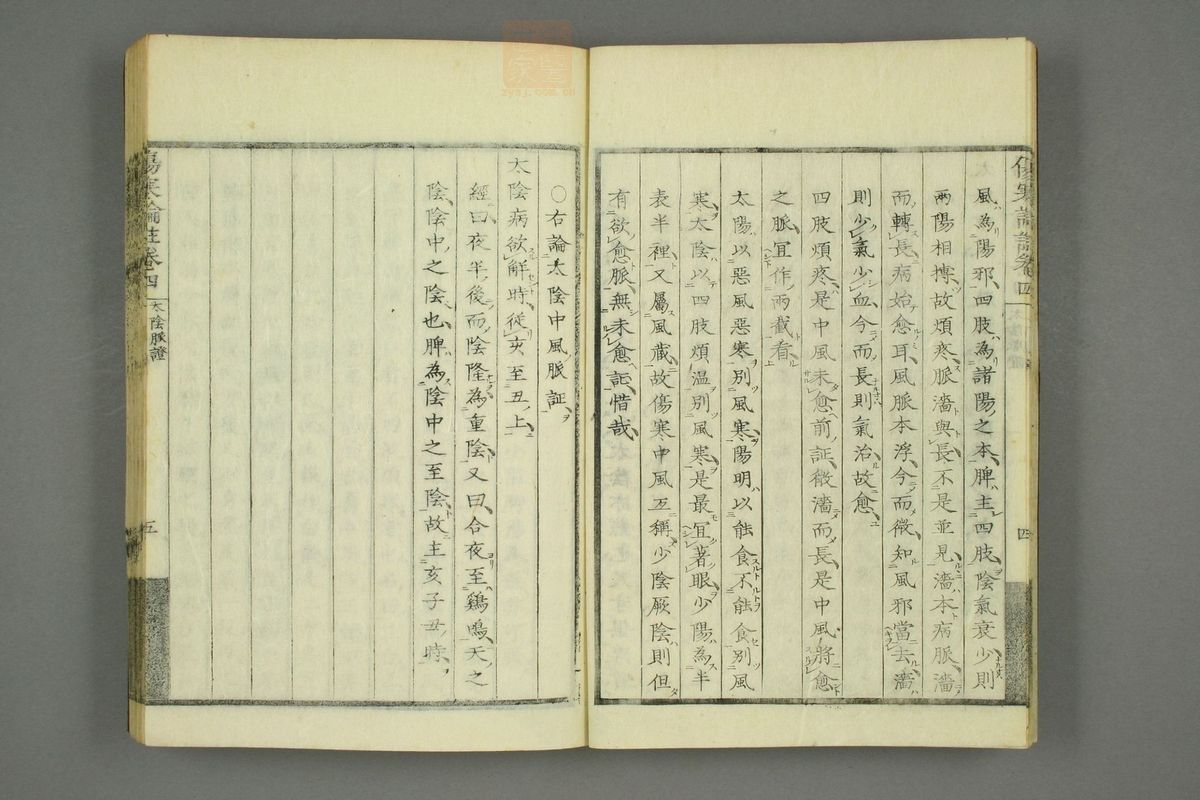 風為陽邪四肢為諸陽之本脾主四肢陰氣衰少則
兩陽相搏故煩疼脈濇與長不是並見濇本病脈濇
而轉長病始愈耳風脈本浮今而微知風邪當去濇
則少氣少血今而長則氣治故愈
四肢煩疼是中風未愈前証微濇而長是中風將愈
之脈宜作兩截看
太陽以惡風惡寒別風寒陽明以能食不能食別風
寒太陰以四肢煩溫別風寒是最宜著眼少陽為半
表半裡又屬風蔵故傷寒中風互稱少陰厥陰則但
有欲愈脈無未愈証惜哉
四
○右論太陰中風脈証
太陰病欲解時從亥至丑上
經曰夜半後而陰隆為重陰又曰合夜至鷄鳴天之
陰陰中之陰也脾為陰中之至陰故主亥子丑時
傷寒論註卷四
太陰脈證
五